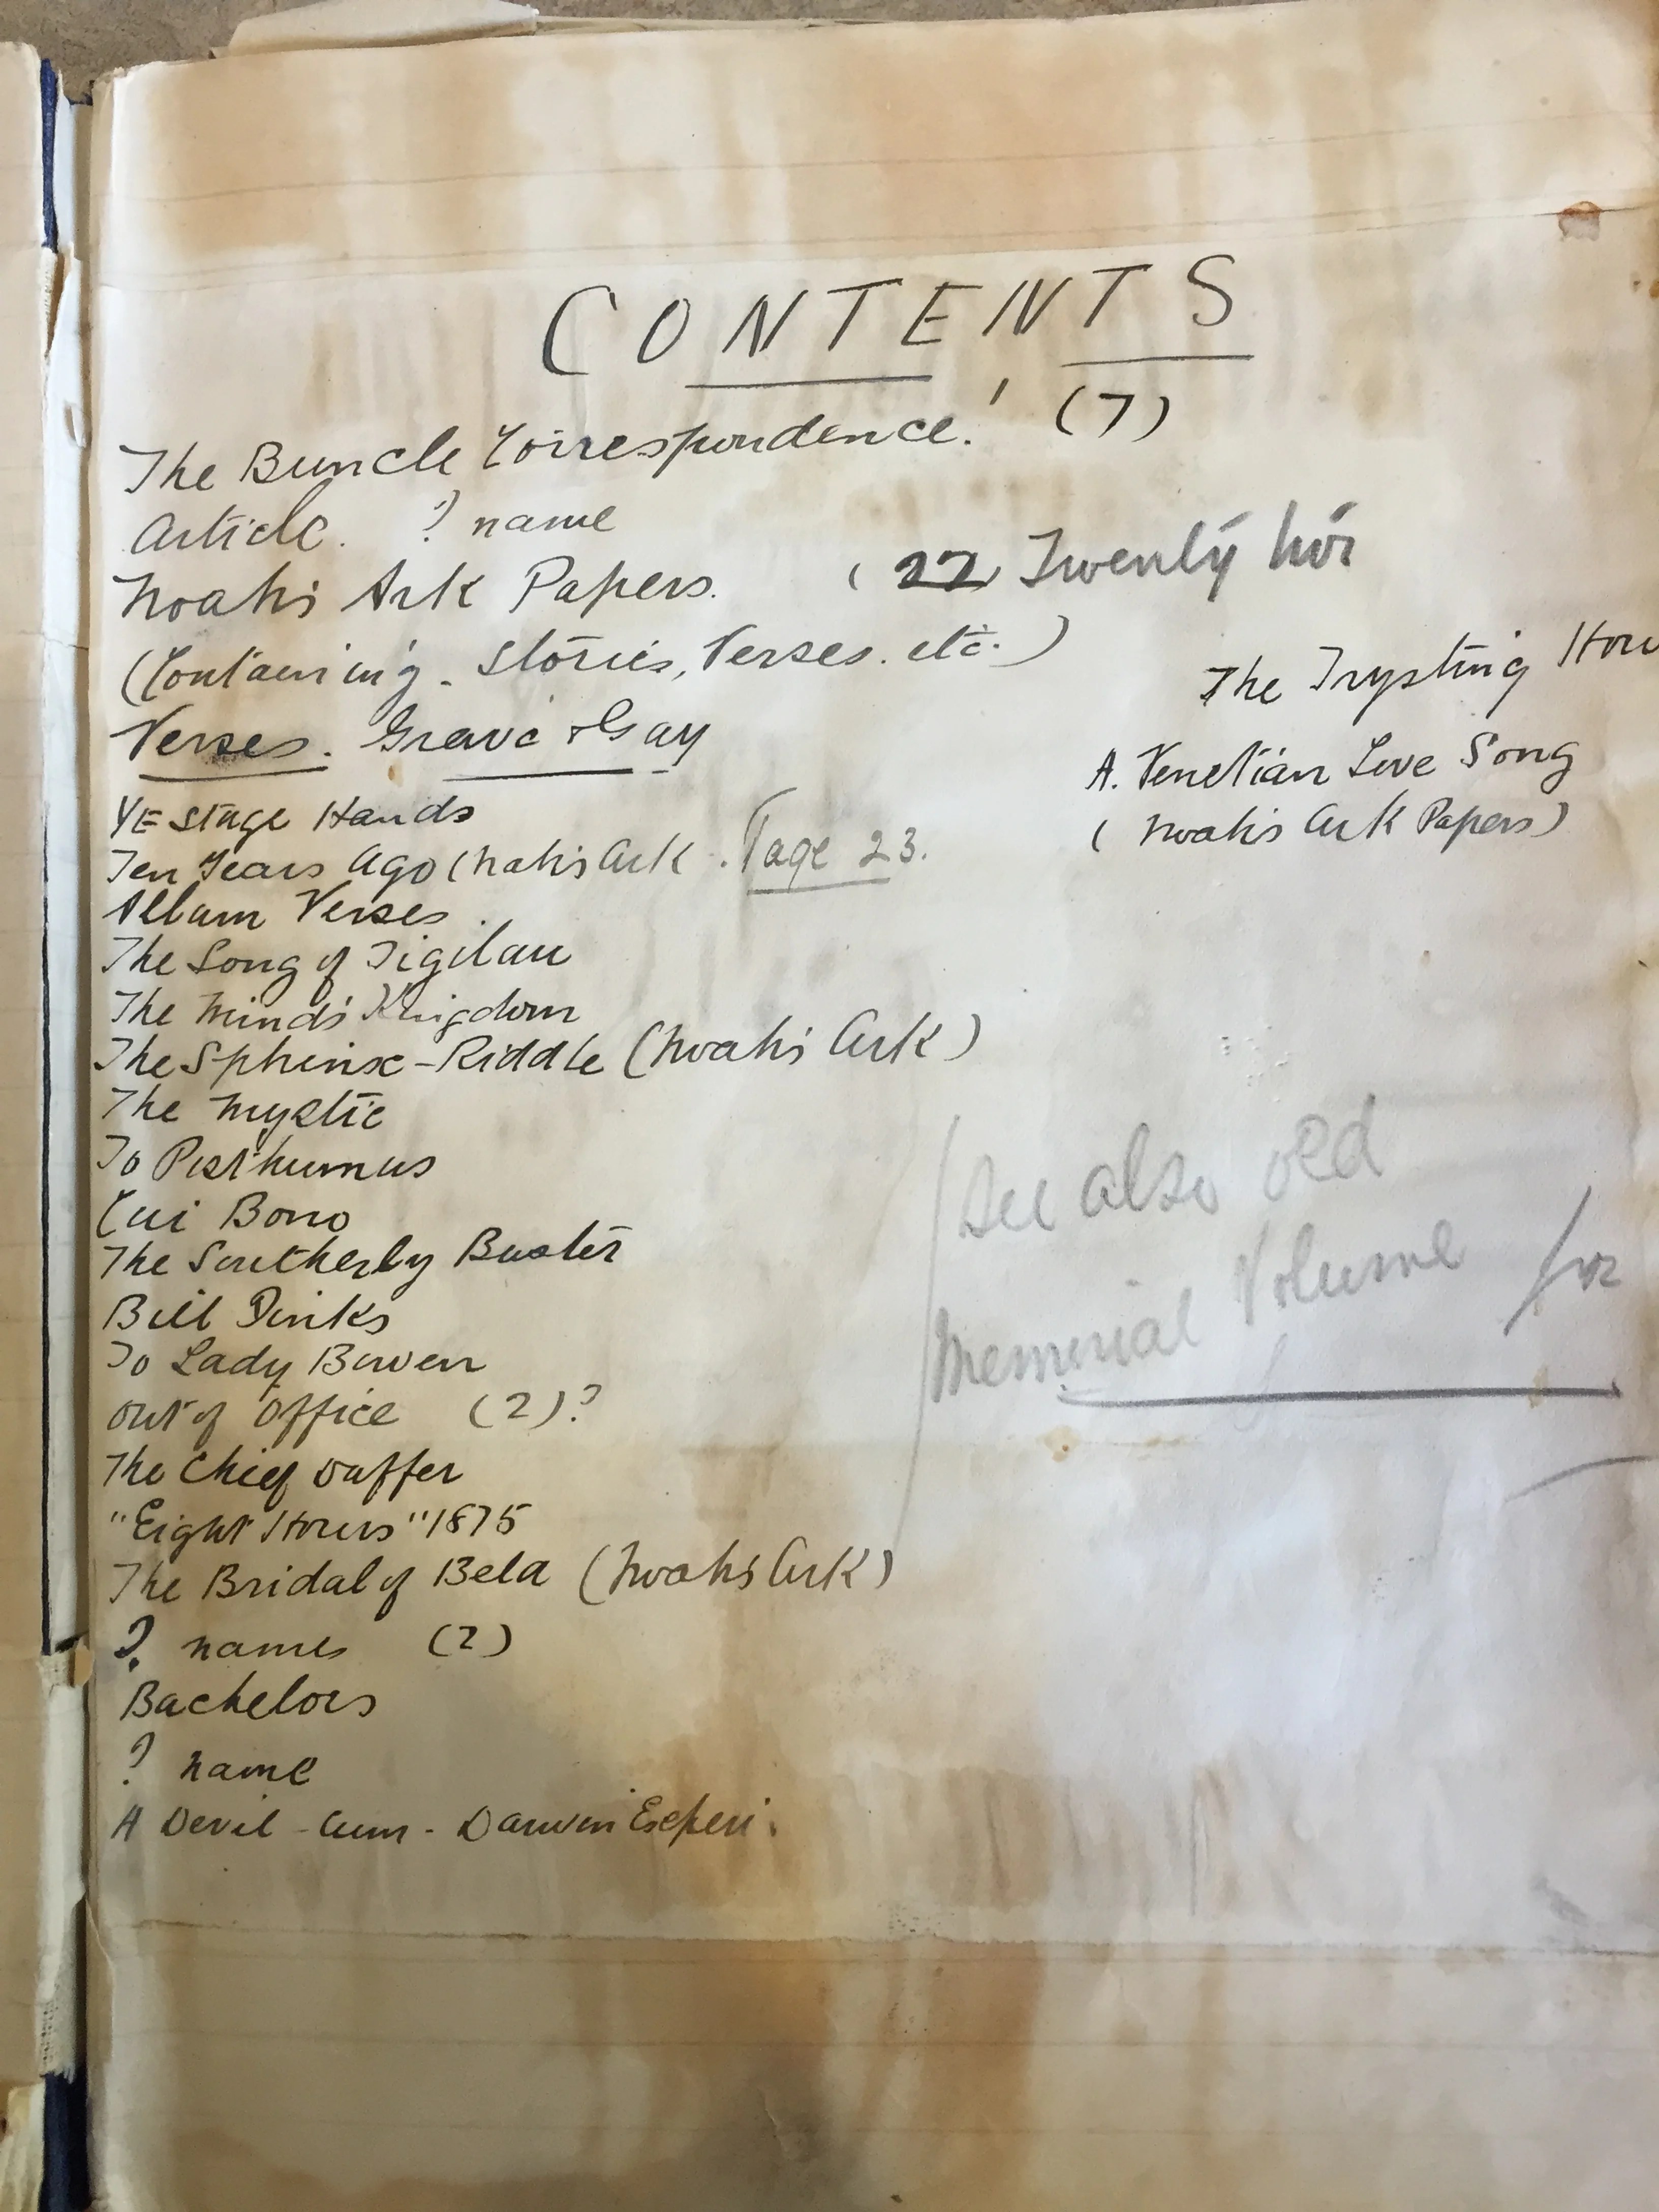 CONTENTS
The Buncle Correspondence! (7)
Article. ? name
Noah's Ark Papers. (22) Twenty
(Containing. Stories, Verses. etc.)
Verses. Grave & Gay
Ye Stage Hands
Ten Years Ago (Nah's Ark. Page 23.
Album Verses.
The Song of Tigilau
The Mind's Kingdom
The Sphinx-Riddle (Noah's Ark)
The Mystic
To Posthumus
Cui Bono
The Southerly Buster
Bill Jinks
To Lady Bowen
Out of Office (2)?
The Chief Duffer
"Eight Hours" 1875
The Bridal of Bela (Noah's Ark)
? names (2)
Bachelors
? name
A Devil-cum-Darwin Experi.
The Trysting
A. Venetian Love Song
(Noah's Ark Papers)
See also old
Memorial Volume for